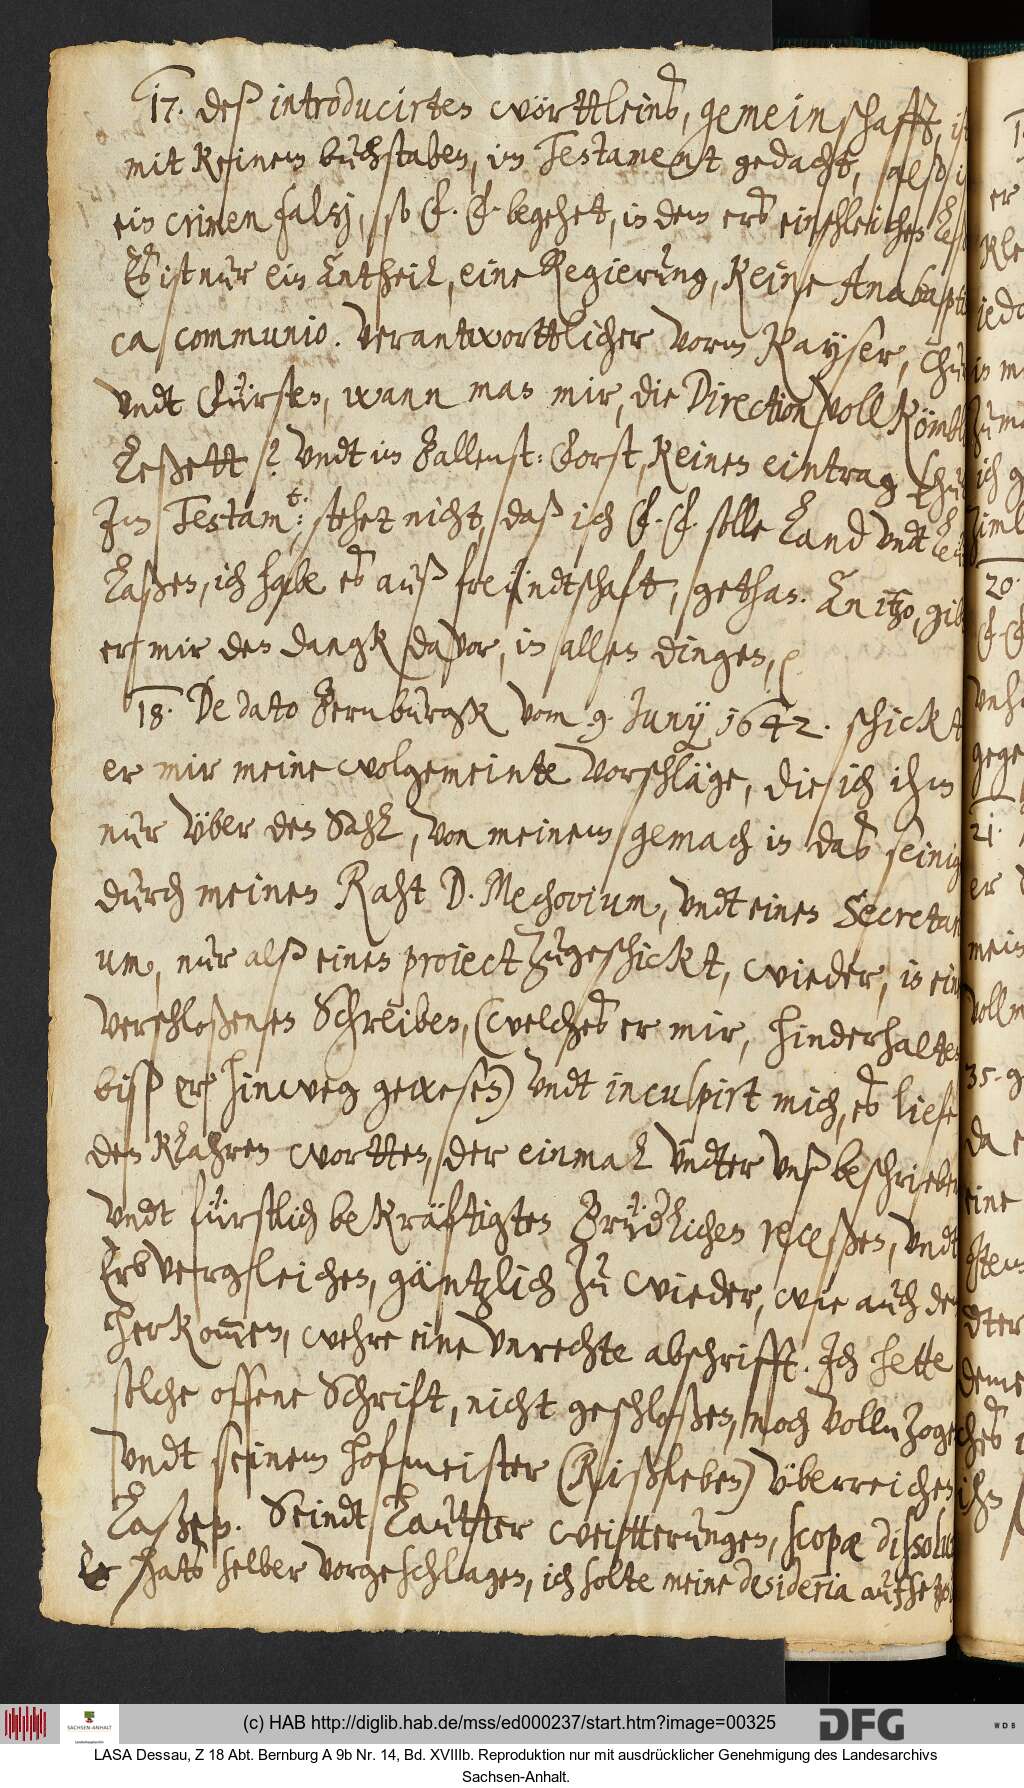 17. deß introducirten wörttleins, gemeinschafft, ist
mit keinem buchstaben, im Testament gedacht, alß i
ein crimen falsj, so C. C. begehet, in dem ers einschleichen
Es ist nur ein Antheil, eine Regierung, keine Anabapti
ca communio. Verantworttlicher vorm Kayser, Chur
vndt Fürsten, wann man mir, die Direction voll kömbl
Leßett? vndt im Ballenst: Forst, keinen eintrag thu
Im Testamt: stehet nicht, daß ich solle Land vndt
Laßen, ich habe es auß freündtschaft, gethan. An itzo, gib
er mir den dangk davor, in allen dingen,
18. De dato Bernburgk vom 9. Junÿ 1642. schickt
er mir meine wolgemeinte vorschläge, die ich ihm
nur über den Sahl, von meinem gemach in das seinig
durch meinen Raht D. Mechovium, vndt einen Secretari
um, nur alß einen project zugeschickt, wieder, in ein
verschloßenen Schreiben, (welches er mir, hinderhalten
biß er hinweg gewesen) vndt inculpirt mich, es liefe
den klahren wortten, der einmal vndter vnß beschrieben
vndt fürstlich bekräftigten Brüdlichen receßen, vndt
Erbvergleichen, gäntzlich zu wieder, wie auch dem
herkommen, wehre eine vnrechte abschrifft. Ich hette
solche offene Schrift, nicht geschloßen, noch volln zogen
vndt seinem hofmeister (Rißleben) überreichen
Laßen. Seindt Lautter weitterungen, scopæ dissolut
Er hats selber vorgeschlagen, ich solte meine desideria aufsetzen
20.
21.
35.
(c) HAB http://diglib.hab.de/mss/ed000237/start.htm?image=00325
SACHSEN-ANHALT
DFG
WDB
LASA Dessau, Z 18 Abt. Bernburg A 9b Nr. 14, Bd. XVIIIb. Reproduktion nur mit ausdrücklicher Genehmigung des Landesarchivs
Sachsen-Anhalt.